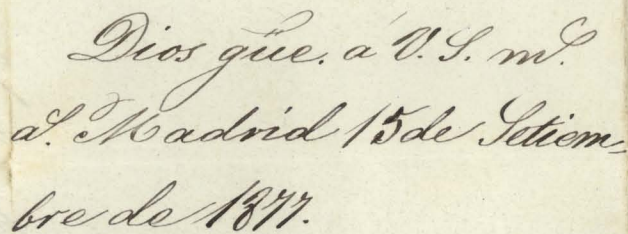 Dios güe. á V. S. mS.
aS. Madrid 15 de Setiem-
bre de 1877.